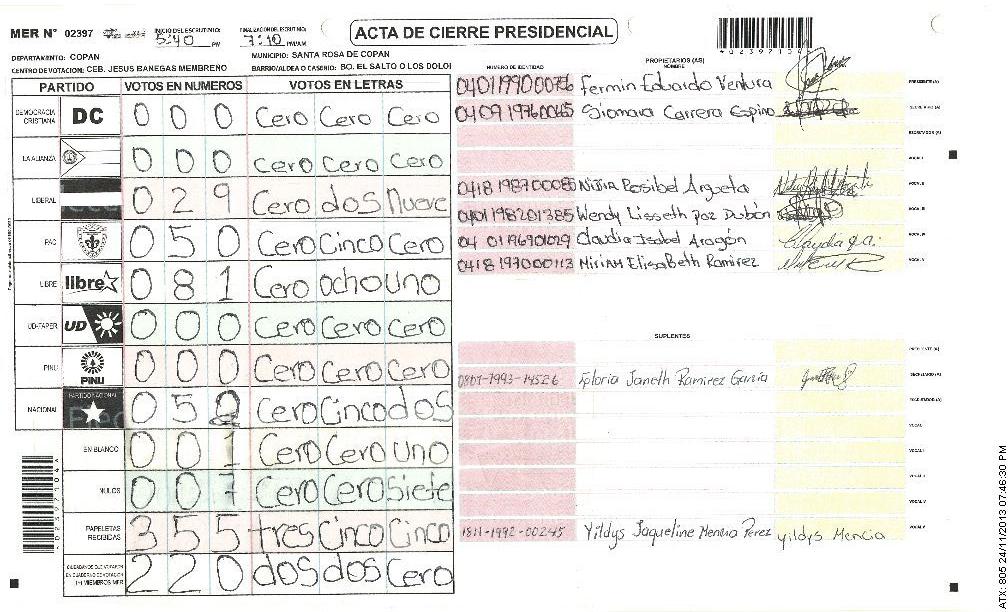 ACTA DE CIERRE PRESIDENCIAL
MER N° 02397
INICIO DEL ESCRUTINIO: 5:40 PM
FINALIZACION DEL ESCRUTINIO: 7:10 PM/AM
DEPARTAMENTO: COPAN
MUNICIPIO: SANTA ROSA DE COPAN
CENTRO DE VOTACION: CEB. JESUS BANEGAS MEMBREÑO
BARRIO/ALDEA O CASERIO: BO. EL SALTO O LOS DOLOI
PARTIDO VOTOS EN NUMEROS VOTOS EN LETRAS
DEMOCRACIA CRISTIANA DC 0 0 0 Cero Cero Cero
LA ALIANZA 0 0 0 cero Cero Cero
LIBERAL 0 2 9 Cero dos Nueve
PAC 0 5 0 Cero Cinco Cero
LIBRE libre 0 8 1 Cero ocho uno
UD-FAPER UD 0 0 0 Cero Cero Cero
PINU PINU 0 0 0 Cero Cero Cero
NACIONAL PARTIDO NACIONAL 0 5 2 Cero Cinco dos
EN BLANCO 0 0 1 Cero Cero uno
NULOS 0 0 7 Cero Cero Siete
PAPELETAS RECIBIDAS 3 5 5 tres Cinco Cinco
CIUDADANOS QUE VOTARON EN CUADERNO DE VOTACION 2 2 0 dos dos Cero
NUMERO DE IDENTIDAD
PROPIETARIOS (AS)
NOMBRE
Fermin Eduardo Ventura PRESIDENTE (A)
0409197600065 Siomara Carrera Espino SECRETARIO (A)
ESCRUTADOR (A)
VOCAL I
0418198700085 Rosibel Argueta VOCAL II
0401198201385 Wendy Lisseth paz Dubón VOCAL III
Claudia Isabel Aragón VOCAL IV
0418197000113 Miriam ElisaBeth Ramirez VOCAL V
SUPLENTES
PRESIDENTE (A)
0801-1993-14526 Gloria Janeth Ramirez Garcia SECRETARIO (A)
ESCRUTADOR (A)
VOCAL I
VOCAL II
VOCAL V
1811-1992-00245 Yildys Jaqueline Mencia Perez yildys Mencia VOCAL V
ATX: 805 24/11/2013 07:46:30 PM